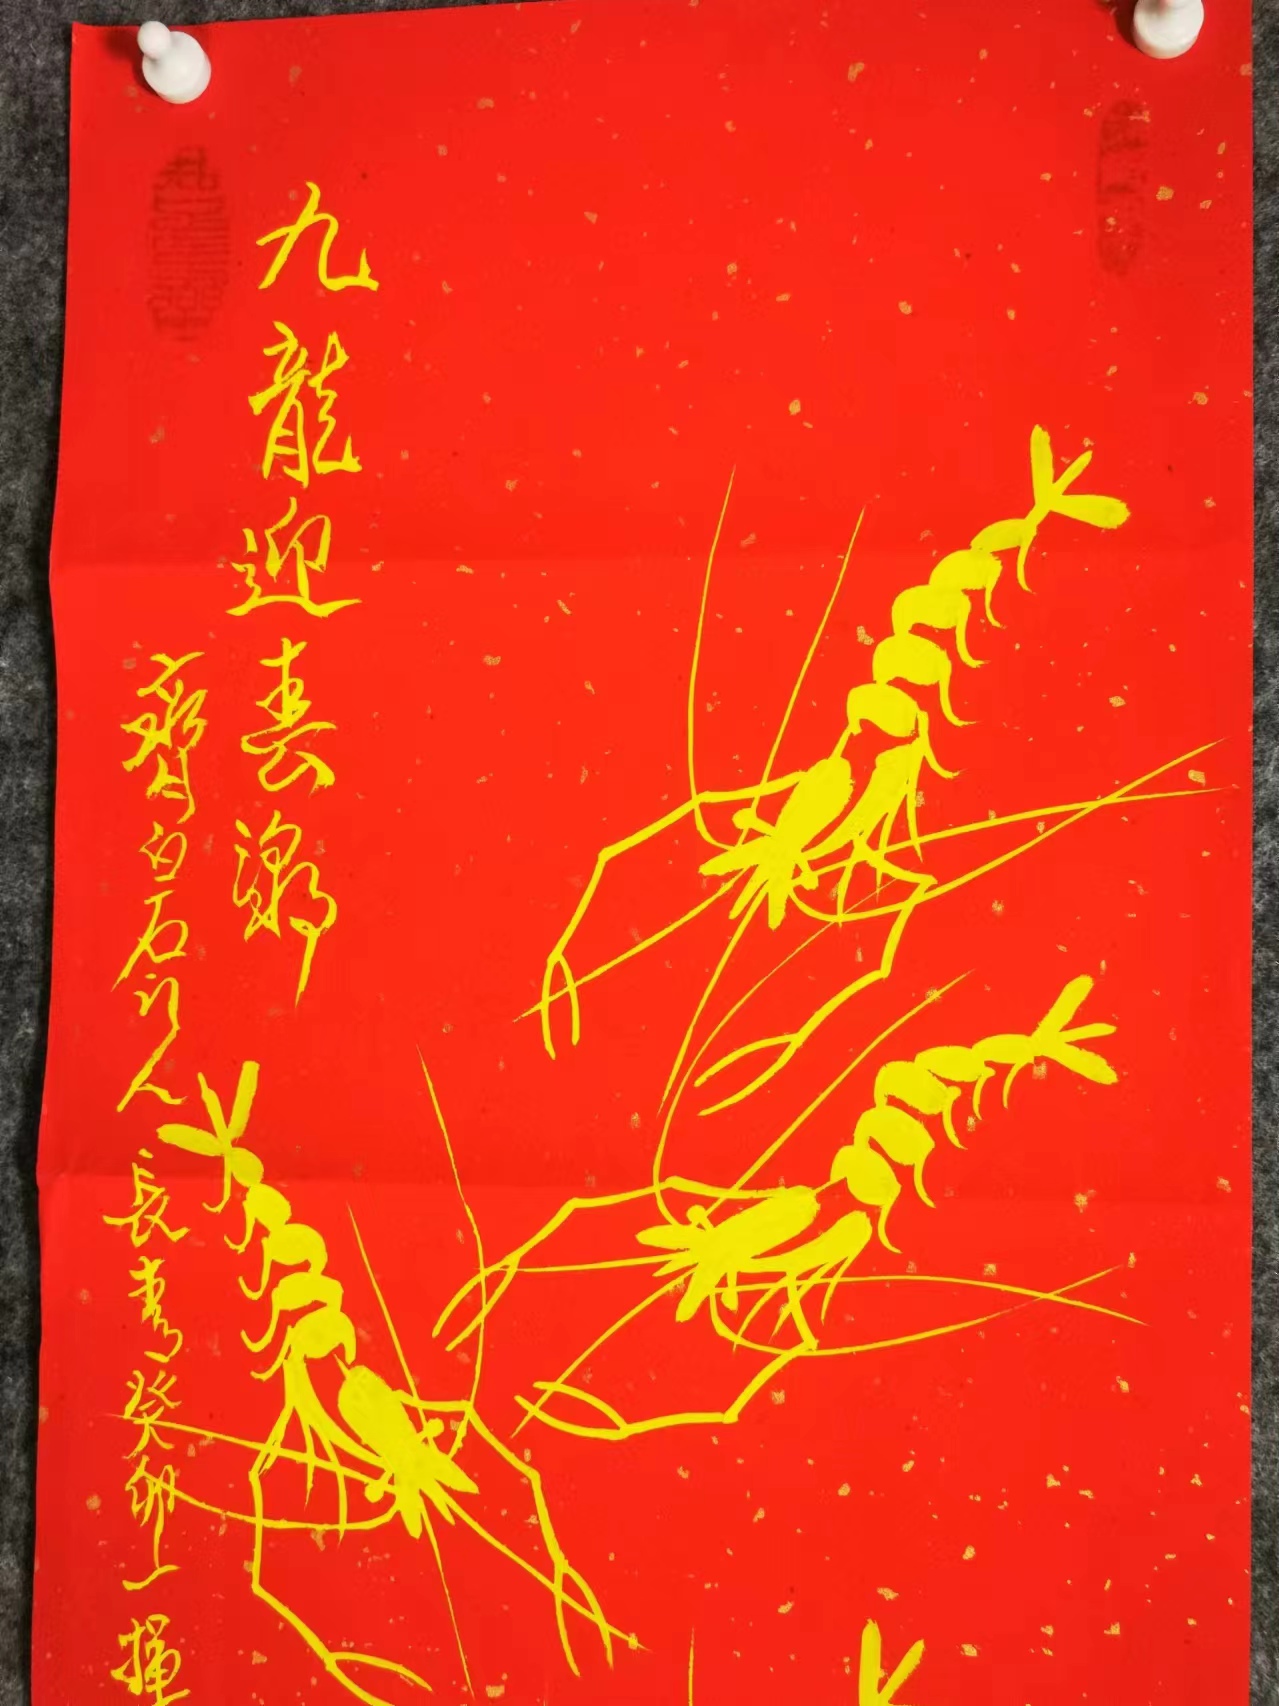 九龍迎春潮
齊白石門人長青癸卯上